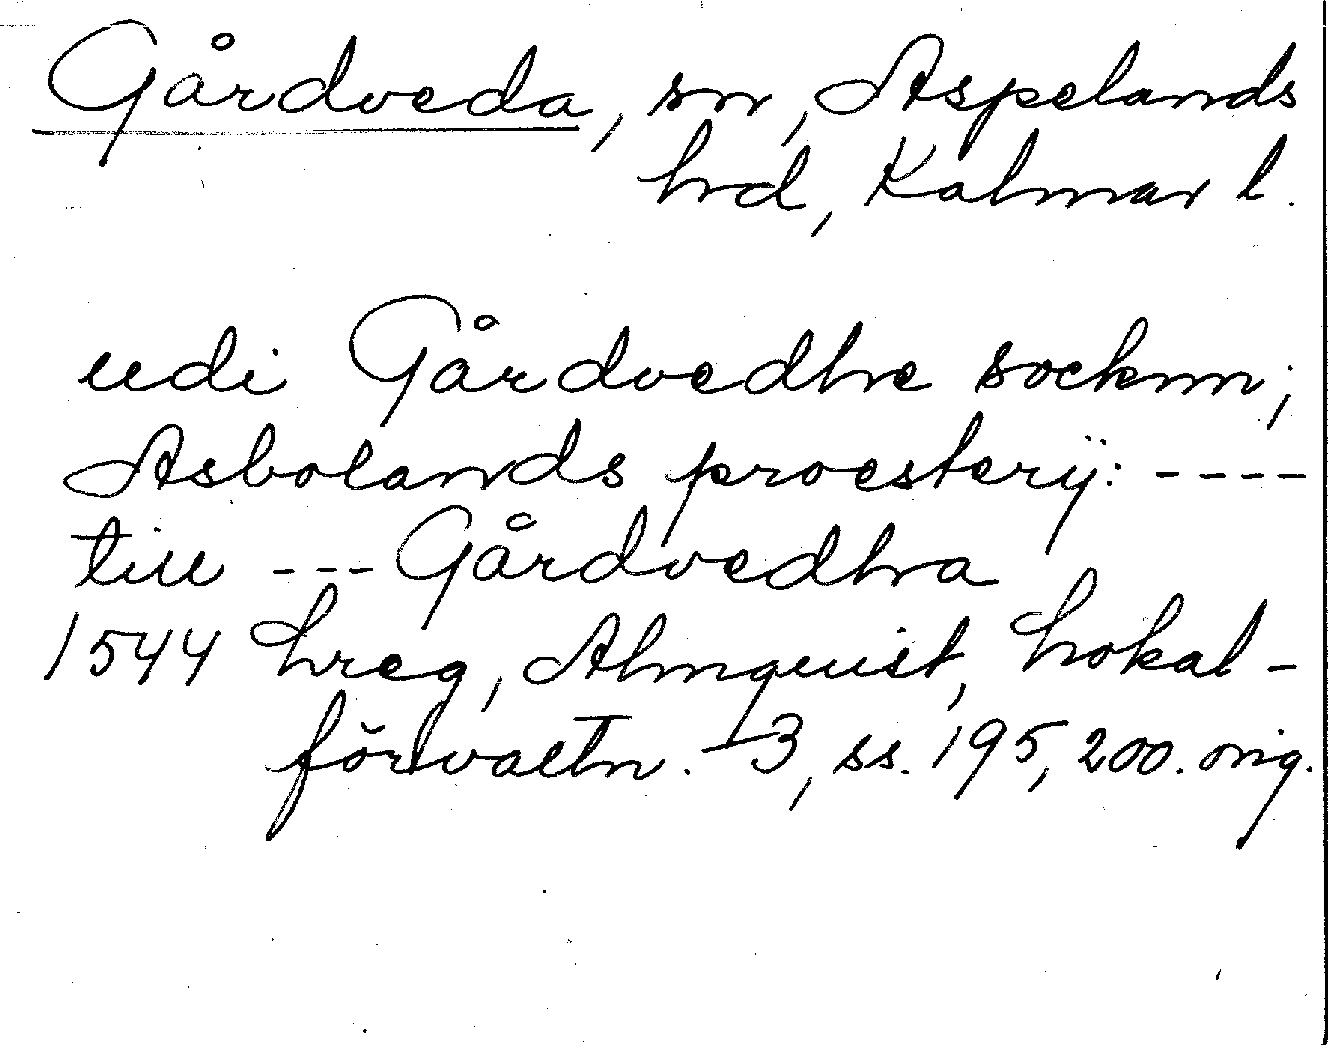 Gårdveda, sn, Aspelands
hrd, Kalmar l.
udi Gårdvedhe socknn;
Asbolands proesterÿ: ----
till --- Gårdvedha
1544 hreg, Almquist, Lokal-
förvaltn. I3, ss. 195, 200. orig.